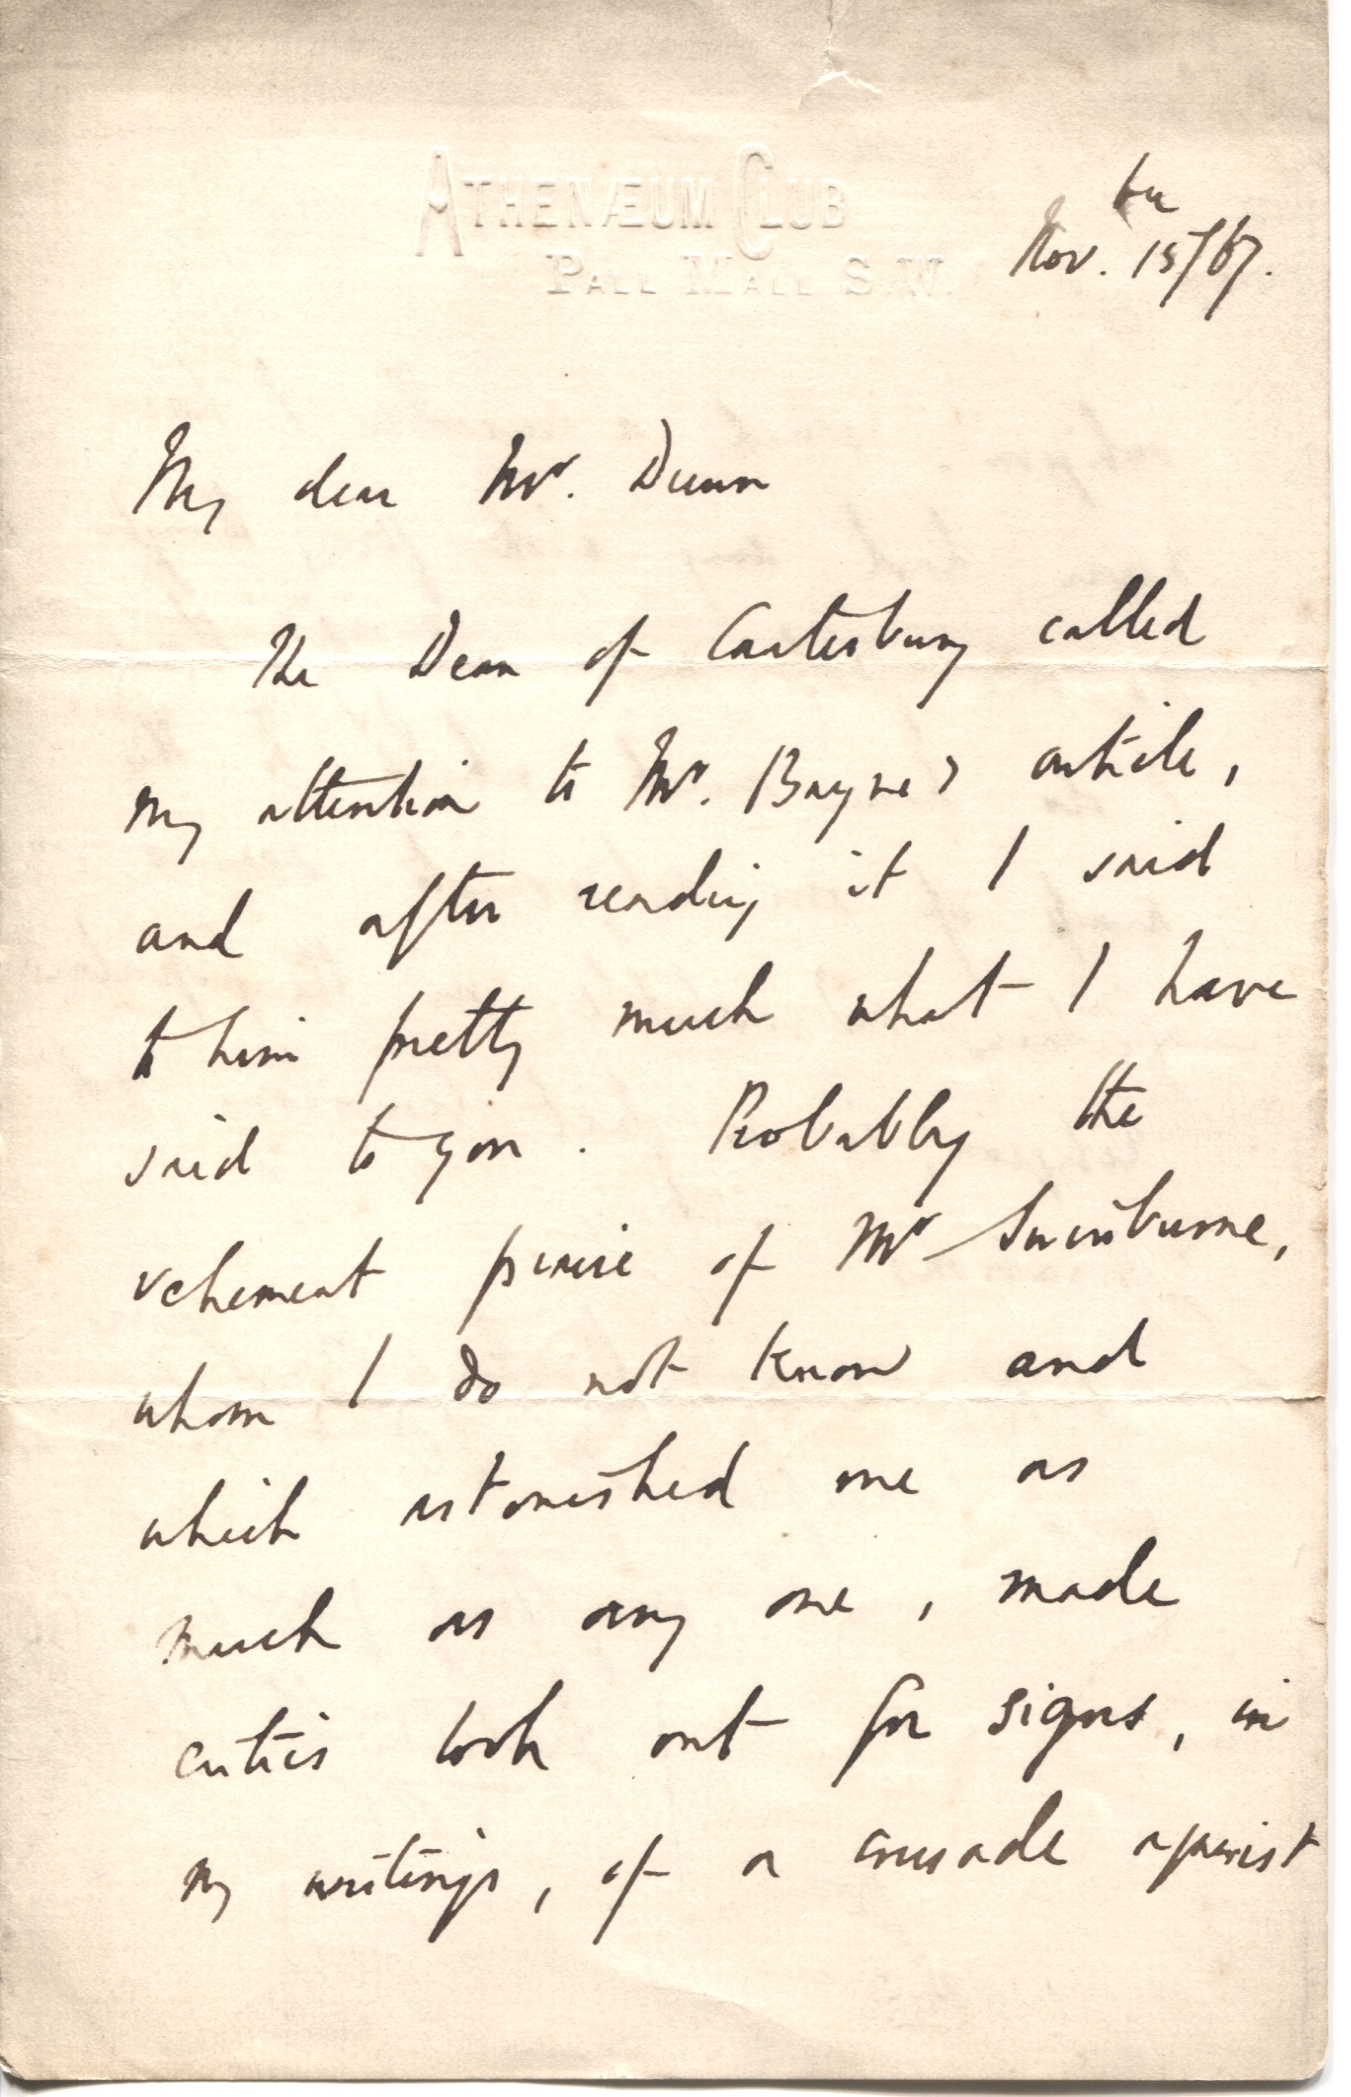 ATHENÆUM CLUB
PALL MALL S.W.
Nov. 15th/67.
My dear Mr. Dunn
The Dean of Canterbury called
my attention to Mr. Bayne's article,
and after reading it I said
to him pretty much what I have
said to you. Probably the
vehement praise of Mr Swinburne,
whom I do not know and
which astonished me as
much as any one, made
critics look out for signs, in
my writings, of a crusade against